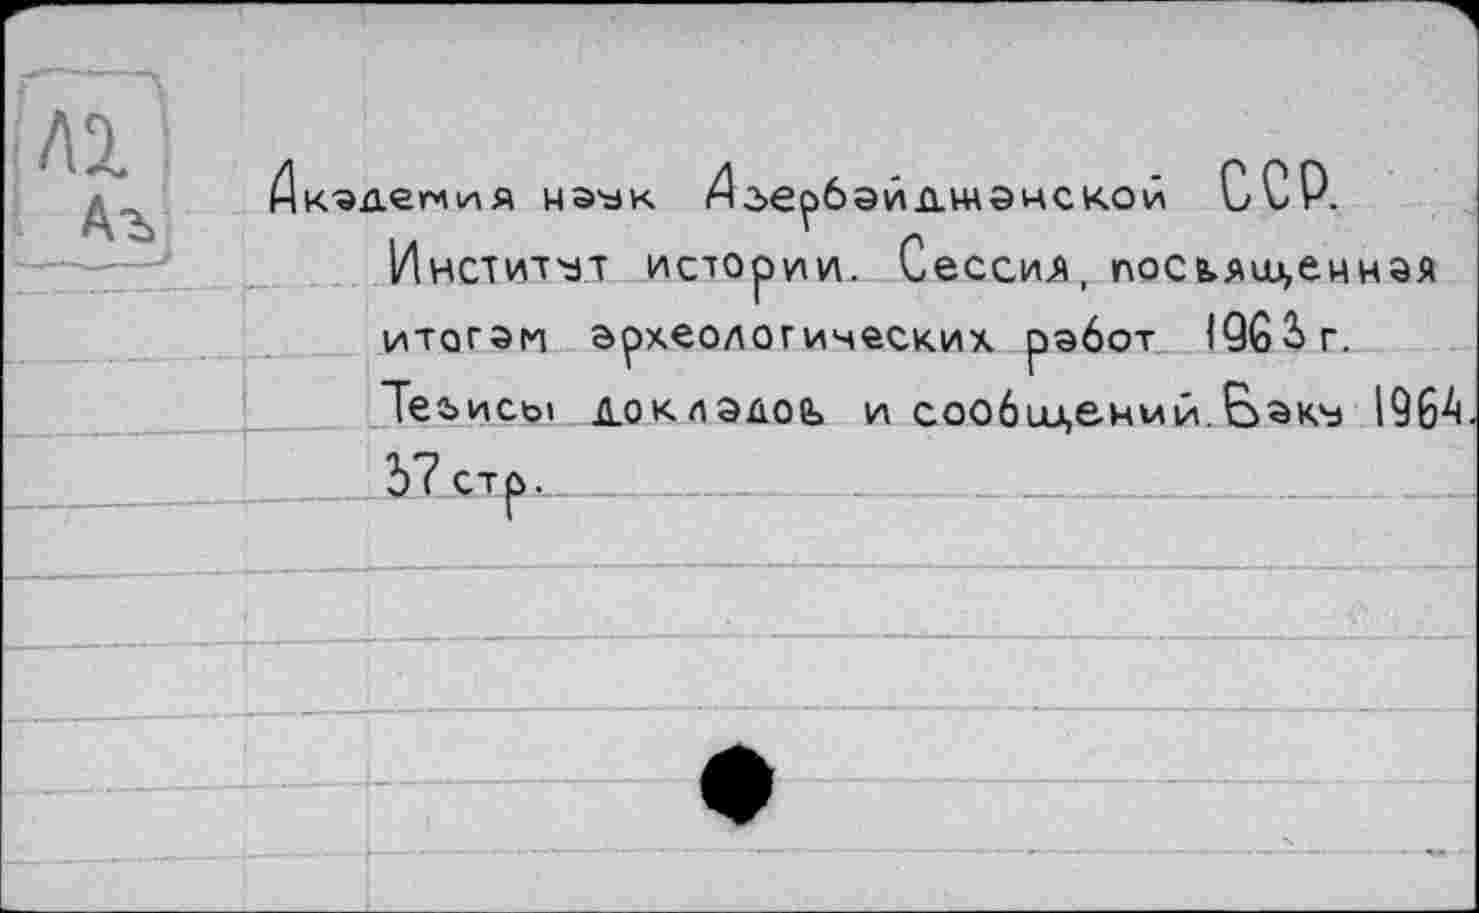 Л2
Аз
Академия наук Азербайджанской ССР.
Институт истории. Сессия, посвященная
итогам археологических работ 1963 г.
Тезисы докладов и сообщений. Баку 1964.
37 стр.